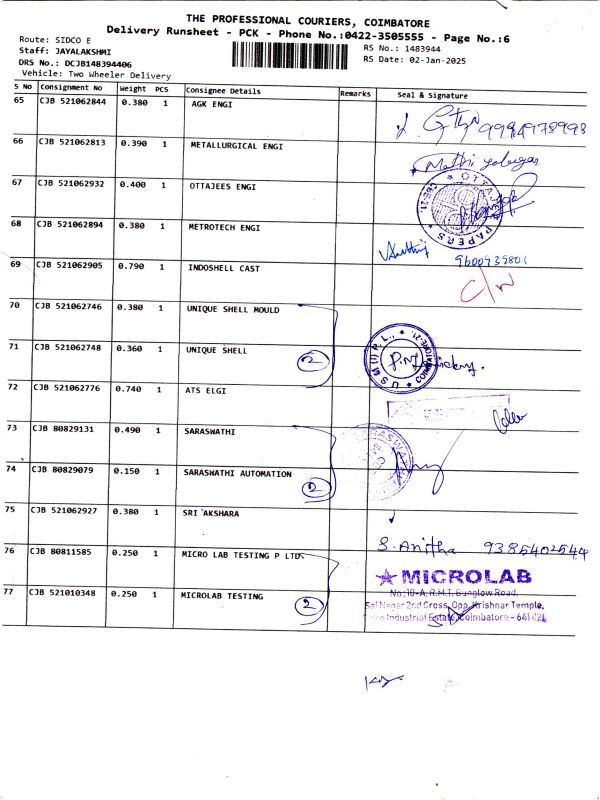 THE PROFESSIONAL COURIERS, COIMBATORE
Delivery Runsheet - PCK - Phone No.:0422-3505555 - Page No.:6
Route: SIDCO E
Staff: JAYALAKSHMI
DRS No.: DCJB148394406
Vehicle: Two Wheeler Delivery
RS No.: 1483944
RS Date: 02-Jan-2025
S No Consignment No Weight PCS Consignee Details Remarks Seal & Signature
65 CJB 521062844 0.380 1 AGK ENGI
9994978998
66 CJB 521062813 0.390 1 METALLURGICAL ENGI
67 CJB 521062932 0.400 1 OTTAJEES ENGI
OTTA
PAPERS
CBE-21
68 CJB 521062894 0.380 1 METROTECH ENGI
9600935801
69 CJB 521062905 0.790 1 INDOSHELL CAST
70 CJB 521062746 0.380 1 UNIQUE SHELL MOULD
71 CJB 521062748 0.360 1 UNIQUE SHELL
2
U S M (I) P. L.,
72 CJB 521062776 0.740 1 ATS ELGI
73 CJB 80829131 0.490 1 SARASWATHI
74 CJB 80829079 0.150 1 SARASWATHI AUTOMATION
2
75 CJB 521062927 0.380 1 SRI AKSHARA
S. Anitha 9385402544
76 CJB 80811585 0.250 1 MICRO LAB TESTING P LTD
77 CJB 521010348 0.250 1 MICROLAB TESTING
2
MICROLAB
No:10-A, R.M.T. Bunglow Road,
Sai Nagar 2nd Cross, Opp. Krishnar Temple,
Industrial Estate, Coimbatore - 641 021.